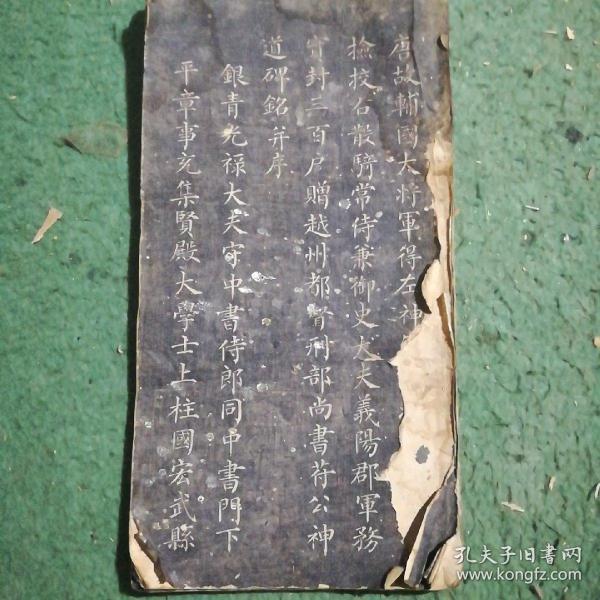 唐故輔國大將軍得左神
撿挍右散騎常侍兼御史大夫義陽郡軍務
宁封三百户贈越州都督刑部尚書苻公神
道碑銘并序
銀青光禄大夫守中書侍郎同中書門下
平章事充集賢殿大學士上柱國宏武縣
孔夫子旧書网
www.kongfz.com